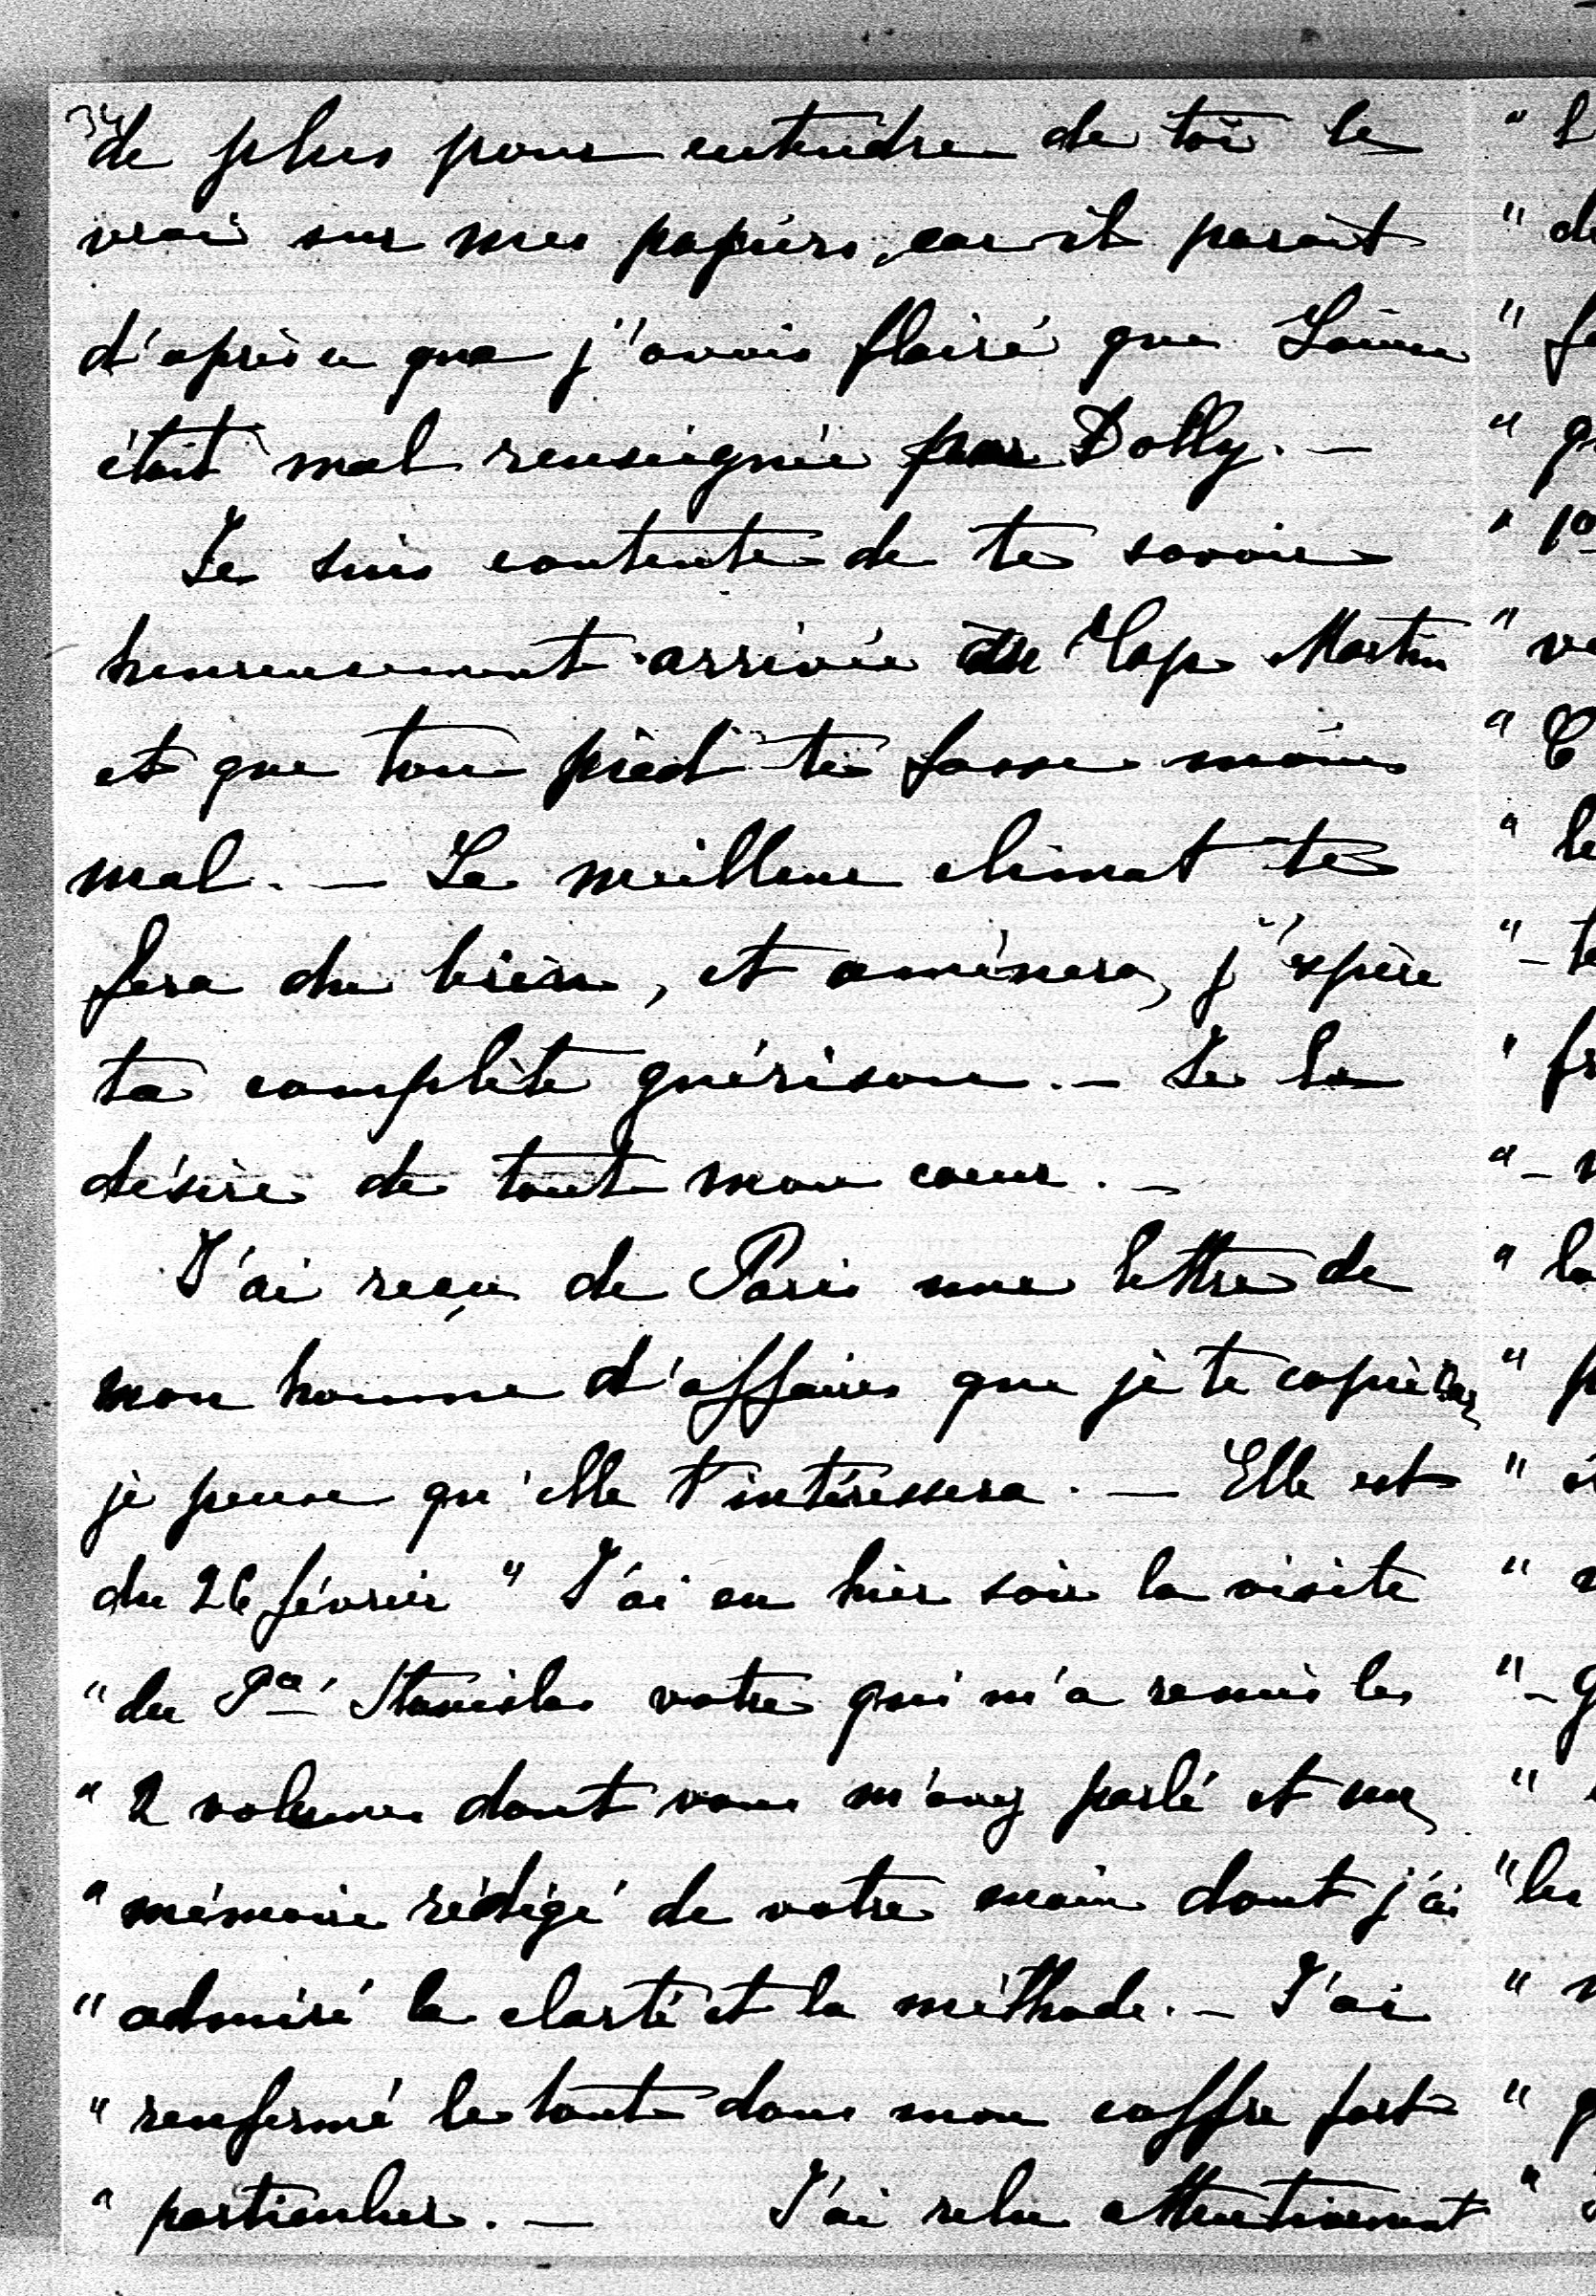 34
de plus pour entendre de toi le
vrai sur mes papiers, car il parait
d'après ce que j'avais flairé que Louise
était mal renseignée par Dolly. —
Je suis contente de te savoir
heureusement arrivée au Cap Martin
et que ton pied te fasse moins
mal. — Le meilleur climat te
fera du bien, et amènera, j'espère
ta complète guérison. — Je le
désire de tout mon cœur. —
J'ai reçu de Paris une lettre de
mon homme d'affaires que je te copierai
je pense qu'elle t'intéressera. — Elle est
du 26 février " J'ai eu hier soir la visite
" du Pce Stanislas votre qui m'a remis les
" 2 volumes dont vous m'avez parlé et un
" mémoire rédigé de votre main dont j'ai
" admiré la clarté et la méthode. — J'ai
" renfermé le tout dans mon coffre fort
" particulier. — J'ai relu attentivement